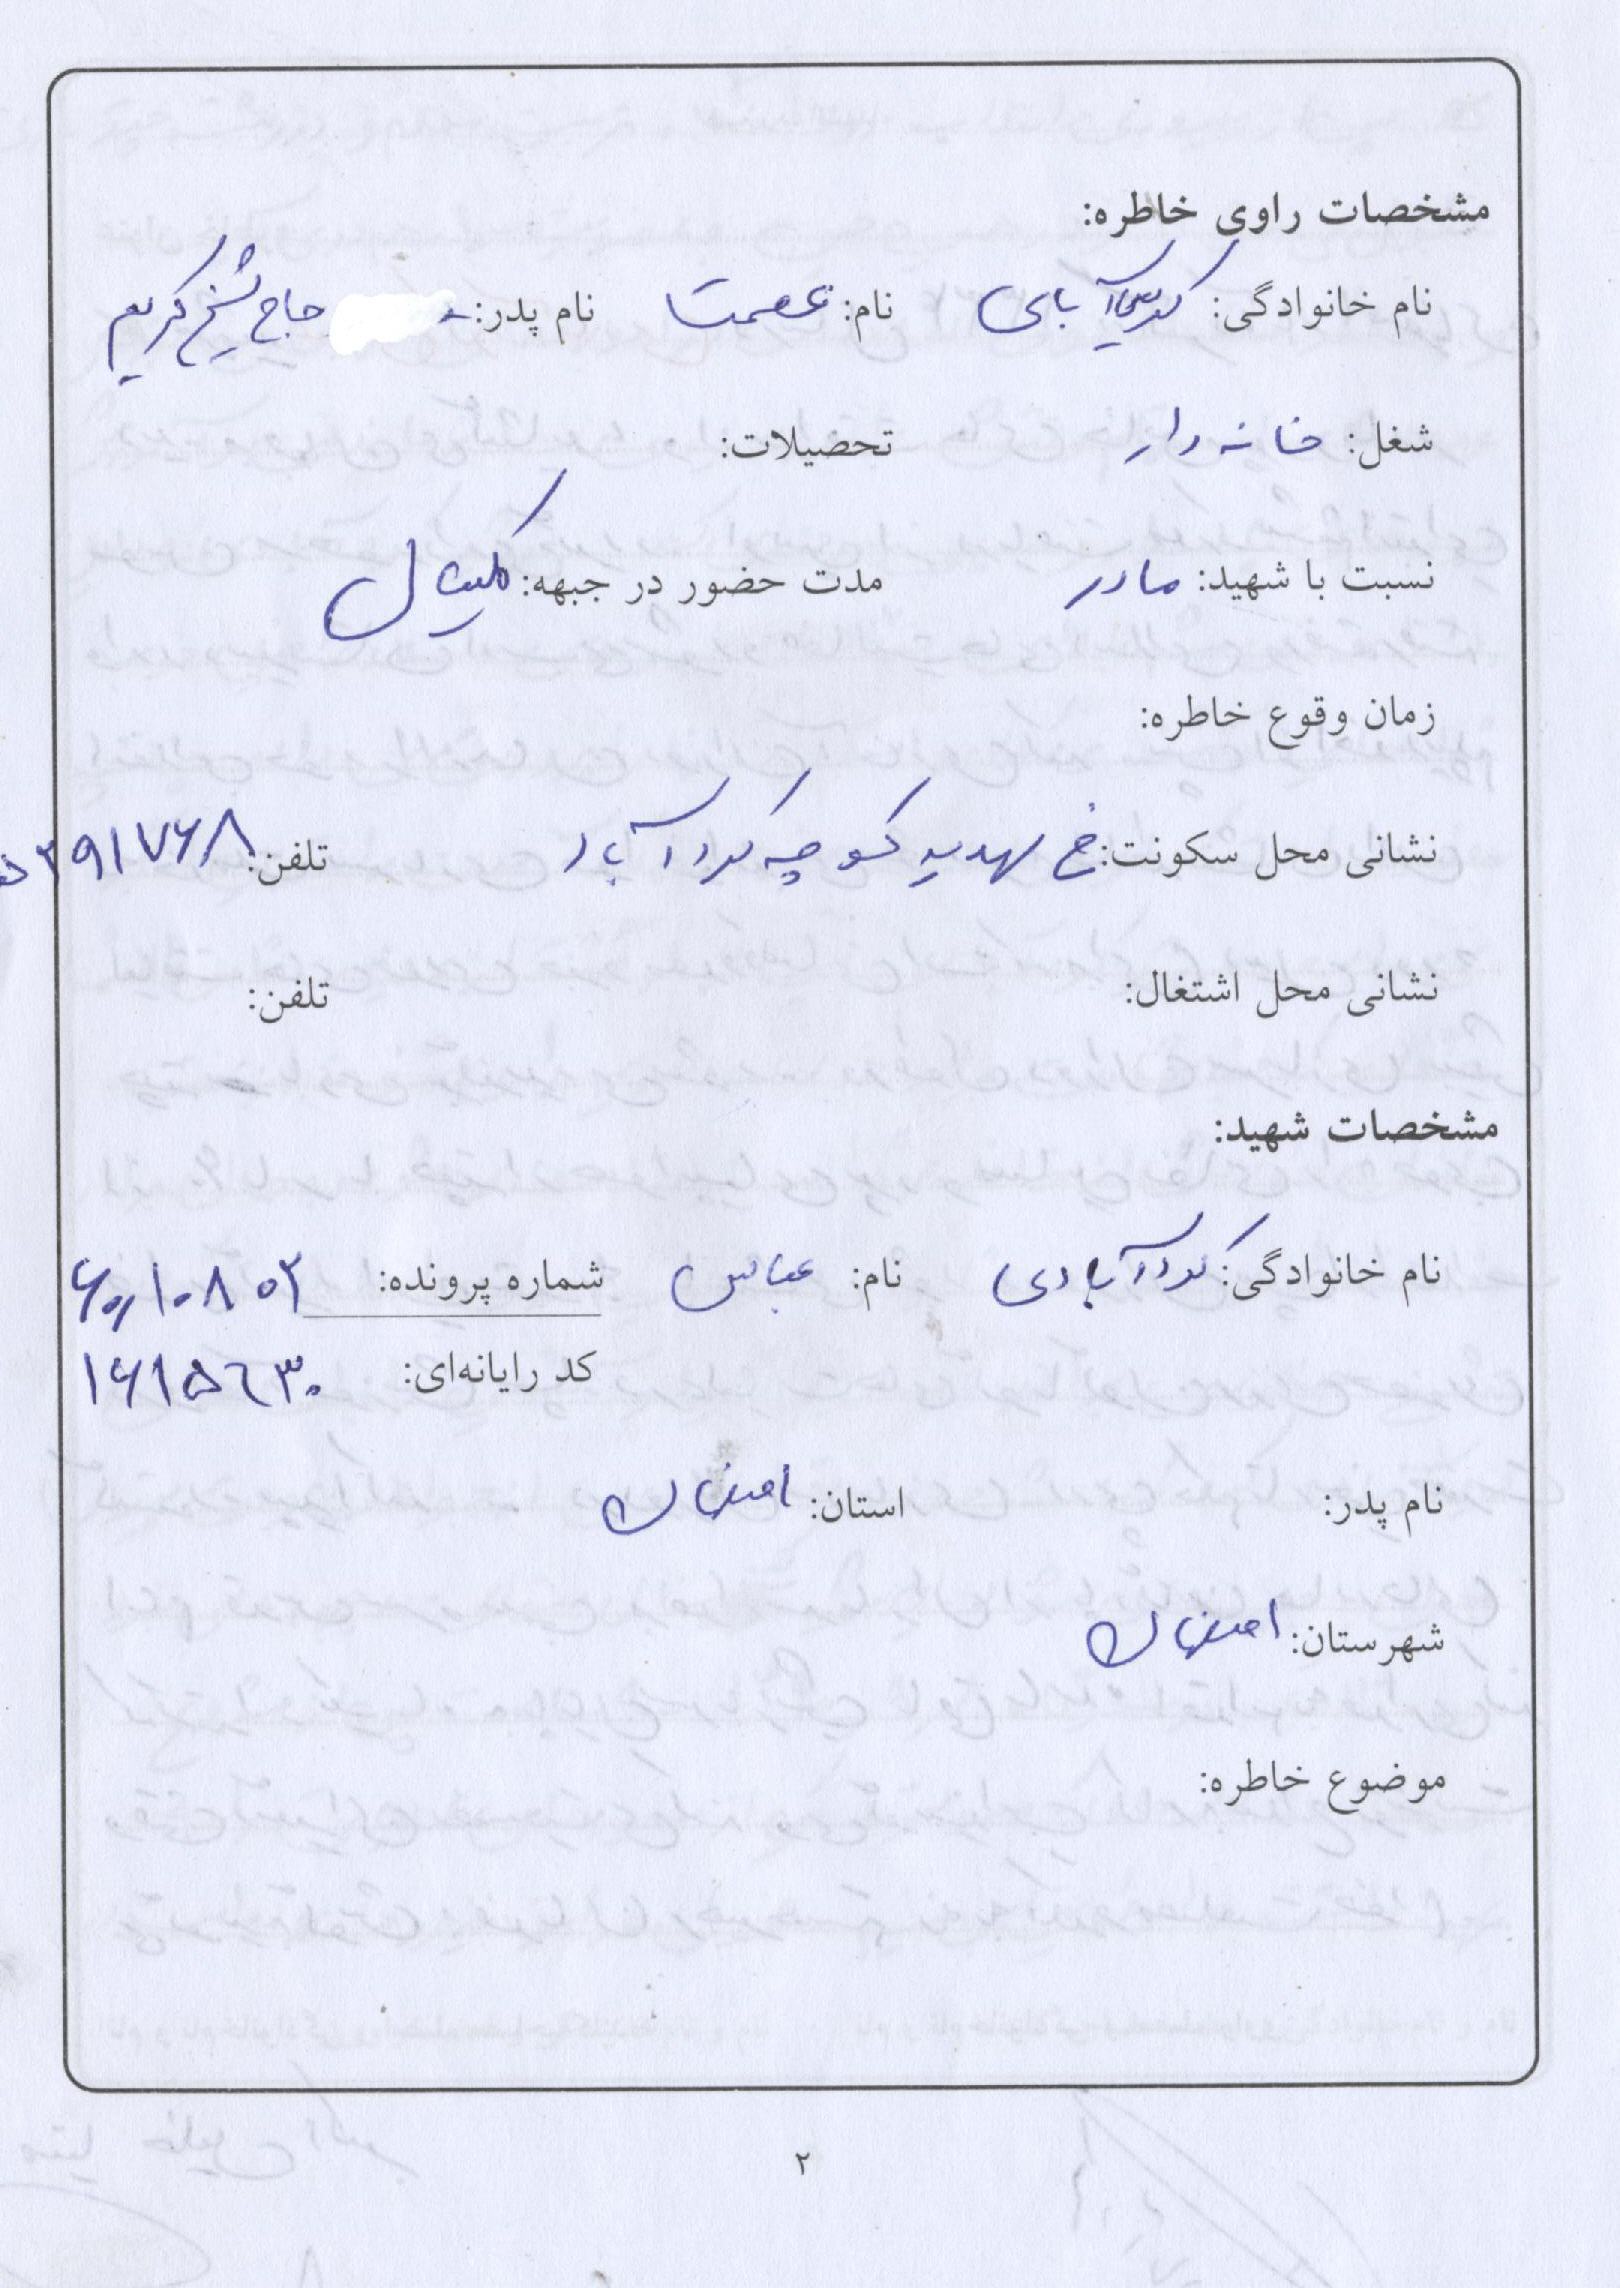 مشخصات راوی خاطره:
نام خانوادگی: نام: عصمت نام پدر: حاج شیخ کریم
شغل: خانه دار تحصیلات:
نسبت با شهید: مادر مدت حضور در جبهه: یکسال
زمان وقوع خاطره:
نشانی محل سکونت: خ کوچه کردآباد تلفن: ۲۹۱۷۶۸
نشانی محل اشتغال: تلفن:
مشخصات شهید:
نام خانوادگی: کردآبادی نام: عباس شماره پرونده: ۶۰۱۰۸۰۲
کد رایانه‌ای: ۱۶۱۵۶۳۰
نام پدر: استان: اصفهان
شهرستان: اصفهان
موضوع خاطره:
۲